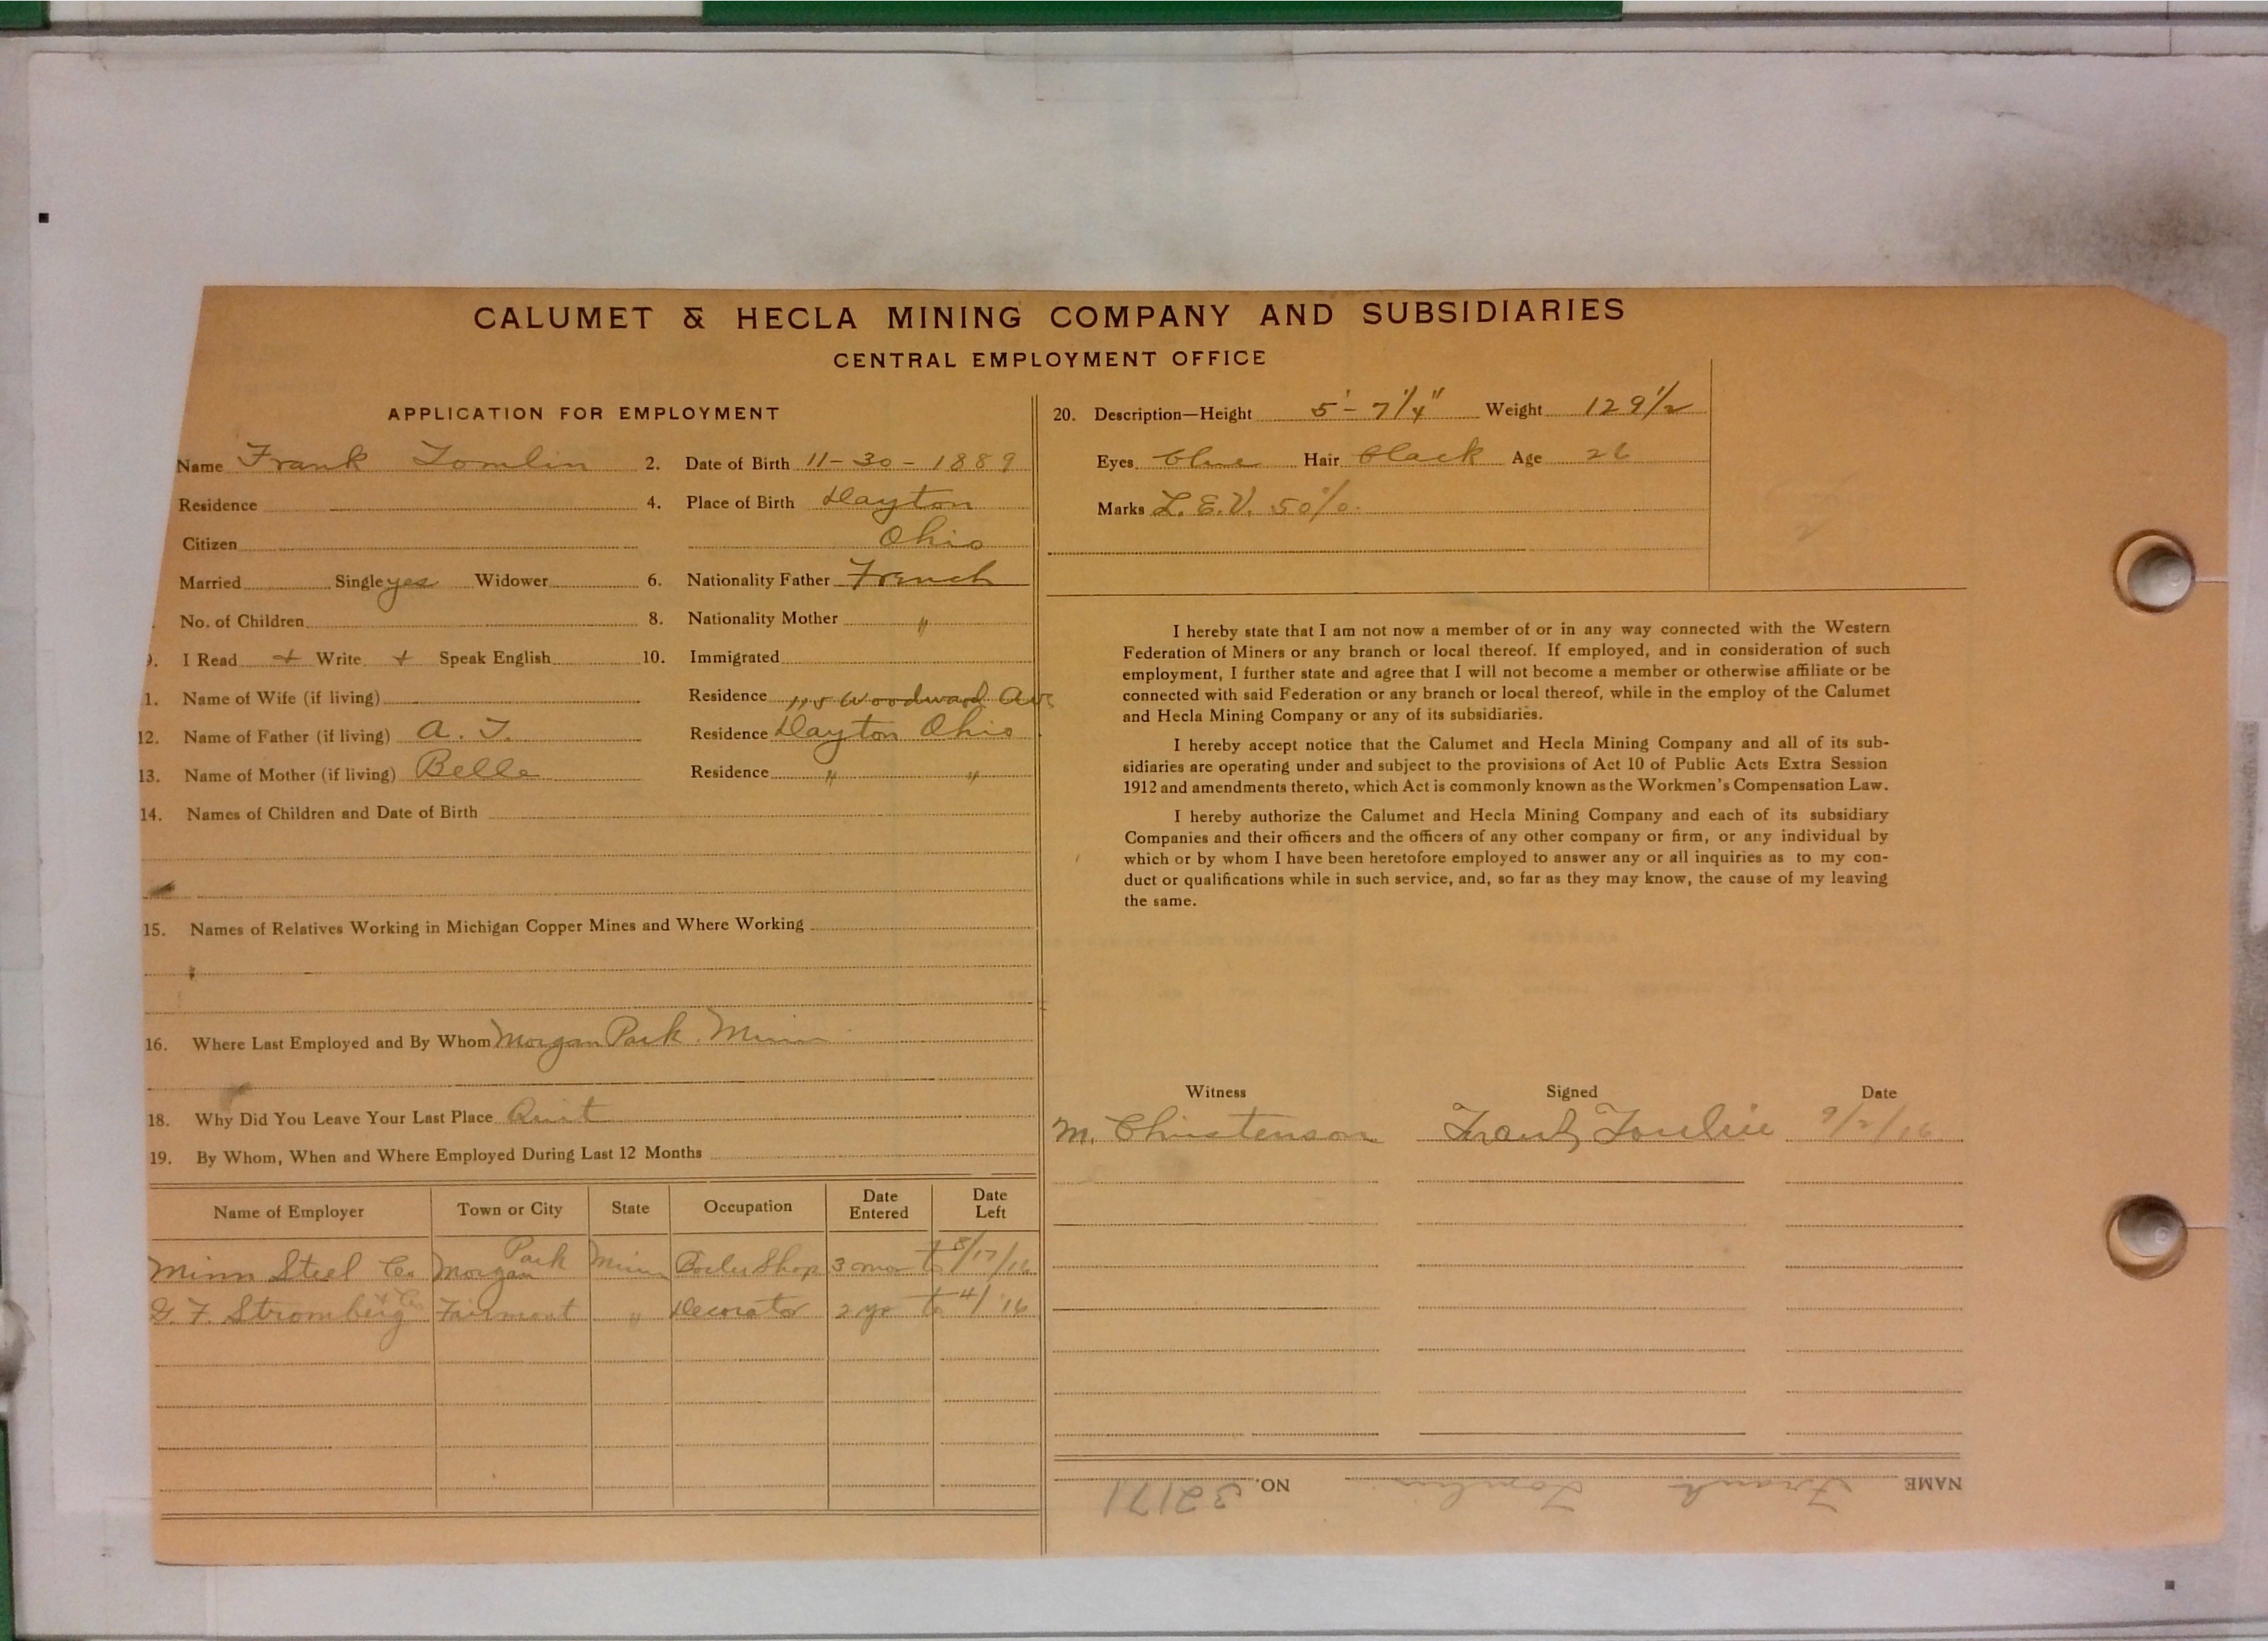 CALUMET & HECLA MINING COMPANY AND SUBSIDIARIES
CENTRAL EMPLOYMENT OFFICE
APPLICATION FOR EMPLOYMENT
Name Frank Tomlin 2. Date of Birth 11-30-1889
Residence 4. Place of Birth Dayton
Citizen Ohio
Married Single yes Widower 6. Nationality Father French
No. of Children 8. Nationality Mother "
9. I Read + Write + Speak English 10. Immigrated
1. Name of Wife (if living) Residence 115 Woodward Ave
12. Name of Father (if living) A. T. Residence Dayton Ohio
13. Name of Mother (if living) Belle Residence " "
14. Names of Children and Date of Birth
15. Names of Relatives Working in Michigan Copper Mines and Where Working
16. Where Last Employed and By Whom Morgan Park. Minn
18. Why Did You Leave Your Last Place Quit
19. By Whom, When and Where Employed During Last 12 Months
Name of Employer Town or City State Occupation Date Entered Date Left
Minn Steel Co Morgan Park Minn Boiler Shop 3 mos to 8/17/16
G. F. Stromberg & Co Fairmont " Decorator 2 yr to 4/16
20. Description—Height 5'-7 1/4" Weight 129 1/2
Eyes blue Hair black Age 26
Marks L. E. V. 50%.
I hereby state that I am not now a member of or in any way connected with the Western
Federation of Miners or any branch or local thereof. If employed, and in consideration of such
employment, I further state and agree that I will not become a member or otherwise affiliate or be
connected with said Federation or any branch or local thereof, while in the employ of the Calumet
and Hecla Mining Company or any of its subsidiaries.
I hereby accept notice that the Calumet and Hecla Mining Company and all of its sub-
sidiaries are operating under and subject to the provisions of Act 10 of Public Acts Extra Session
1912 and amendments thereto, which Act is commonly known as the Workmen's Compensation Law.
I hereby authorize the Calumet and Hecla Mining Company and each of its subsidiary
Companies and their officers and the officers of any other company or firm, or any individual by
which or by whom I have been heretofore employed to answer any or all inquiries as to my con-
duct or qualifications while in such service, and, so far as they may know, the cause of my leaving
the same.
Witness Signed Date
M. Christenson Frank Tomlin 9/2/16
NAME Frank Tomlin NO. 32171